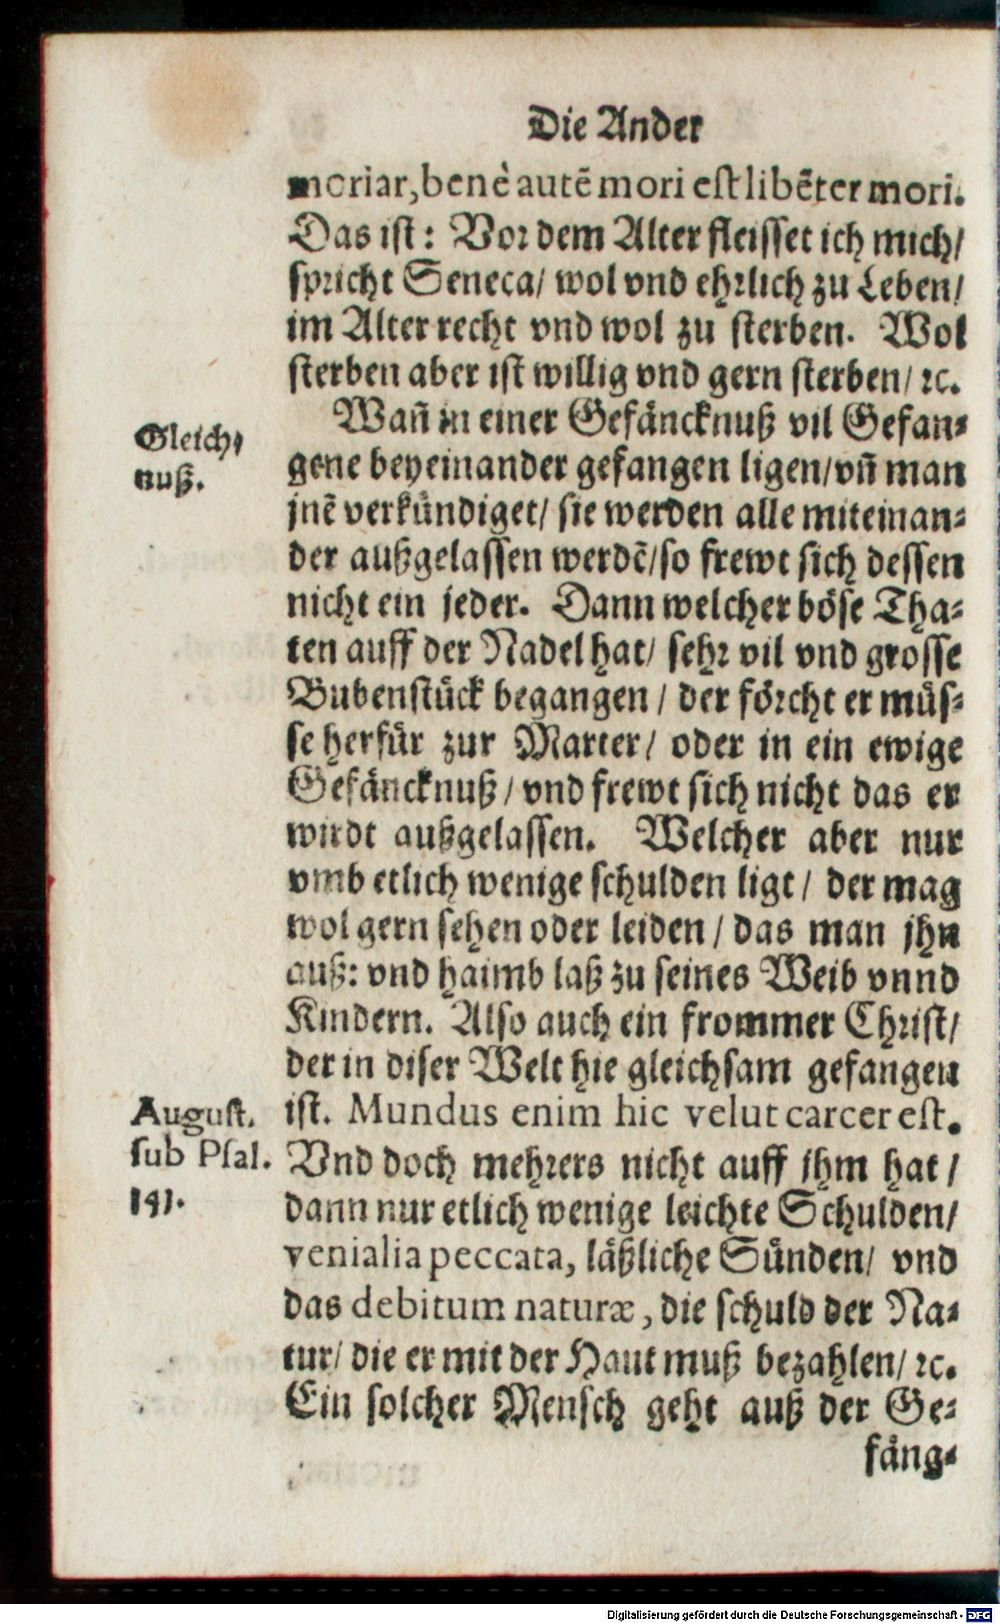 Die Ander
moriar, benè autē mori est libēter mori.
Das ist: Vor dem Alter fleisset ich mich/
spricht Seneca/ wol vnd ehrlich zu Leben/
im Alter recht vnd wol zu sterben. Wol
sterben aber ist willig vnd gern sterben/ ꝛc.
Gleich-
nuß.
Wañ in einer Gefäncknuß vil Gefan-
gene beyeinander gefangen ligen/ vñ man
jnē verkündiget/ sie werden alle miteinan-
der außgelassen werdē/ so frewt sich dessen
nicht ein jeder. Dann welcher böse Tha-
ten auff der Nadel hat/ sehr vil vnd grosse
Bubenstück begangen / der förcht er müs-
se herfür zur Marter/ oder in ein ewige
Gefäncknuß / vnd frewt sich nicht das er
wirdt außgelassen. Welcher aber nur
vmb etlich wenige schulden ligt / der mag
wol gern sehen oder leiden / das man jhn
auß: vnd haimb laß zu seines Weib vnnd
Kindern. Also auch ein frommer Christ/
der in diser Welt hie gleichsam gefangen
ist. Mundus enim hic velut carcer est.
August.
sub Psal.
141.
Vnd doch mehrers nicht auff jhm hat /
dann nur etlich wenige leichte Schulden/
venialia peccata, läßliche Sünden/ vnd
das debitum naturæ, die schuld der Na-
tur/ die er mit der Haut muß bezahlen/ ꝛc.
Ein solcher Mensch geht auß der Ge-
fäng-
Digitalisierung gefördert durch die Deutsche Forschungsgemeinschaft - DFG